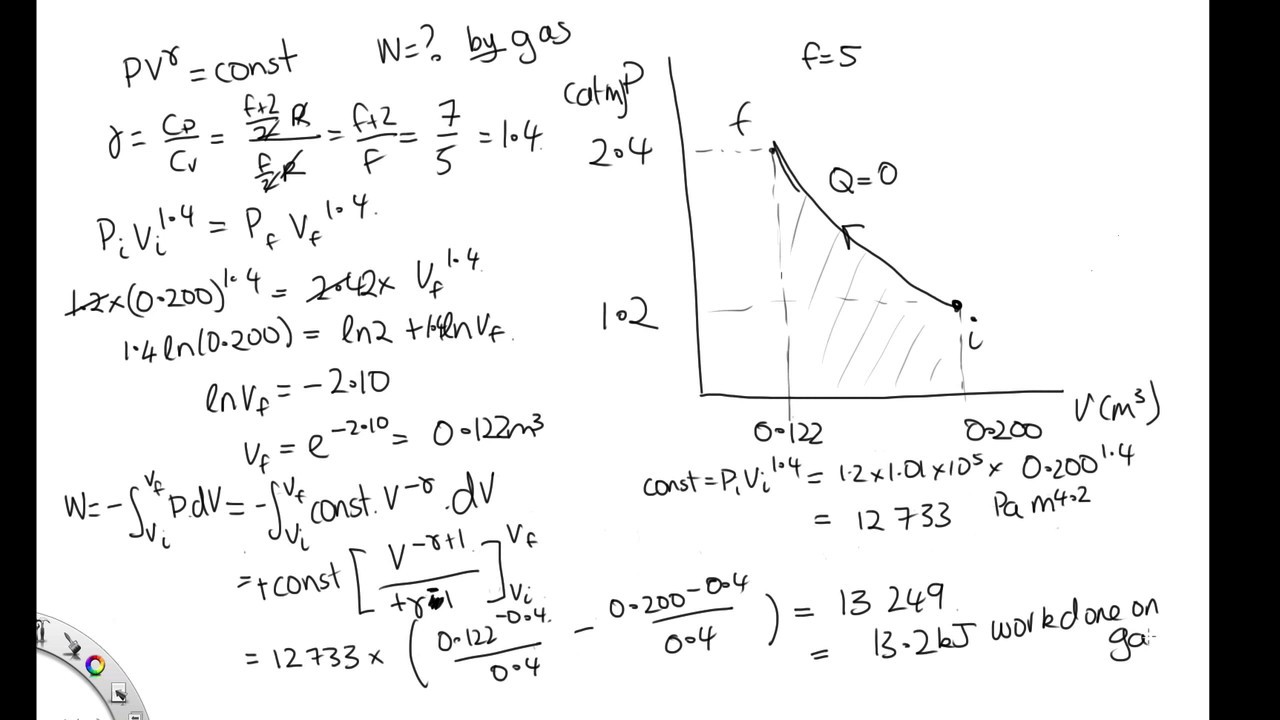 PV^γ = const W=? by gas
γ = Cp/Cv = (f+2/2 R)/(f/2 R) = f+2/f = 7/5 = 1.4
PiVi^1.4 = Pf Vf^1.4
1.2×(0.200)^1.4 = 2.42× Vf^1.4
1.4 ln(0.200) = ln2 + 1.4lnVf
lnVf = -2.10
Vf = e^-2.10 = 0.122m³
W = -∫Vi^Vf P.dV = -∫Vi^Vf const. V^-γ .dV
= +const [V^-γ+1 / +γ-1]Vi^Vf
= 12733 × (0.122^-0.4 / 0.4 - 0.200^-0.4 / 0.4) = 13 249
= 13.2kJ work done on
ga
f=5
(atm)P
f
2.4
Q=0
1.2
i
V(m³)
0.122 0.200
const = PiVi^1.4 = 1.2×1.01×10^5 × 0.200^1.4
= 12 733 Pa m^4.2